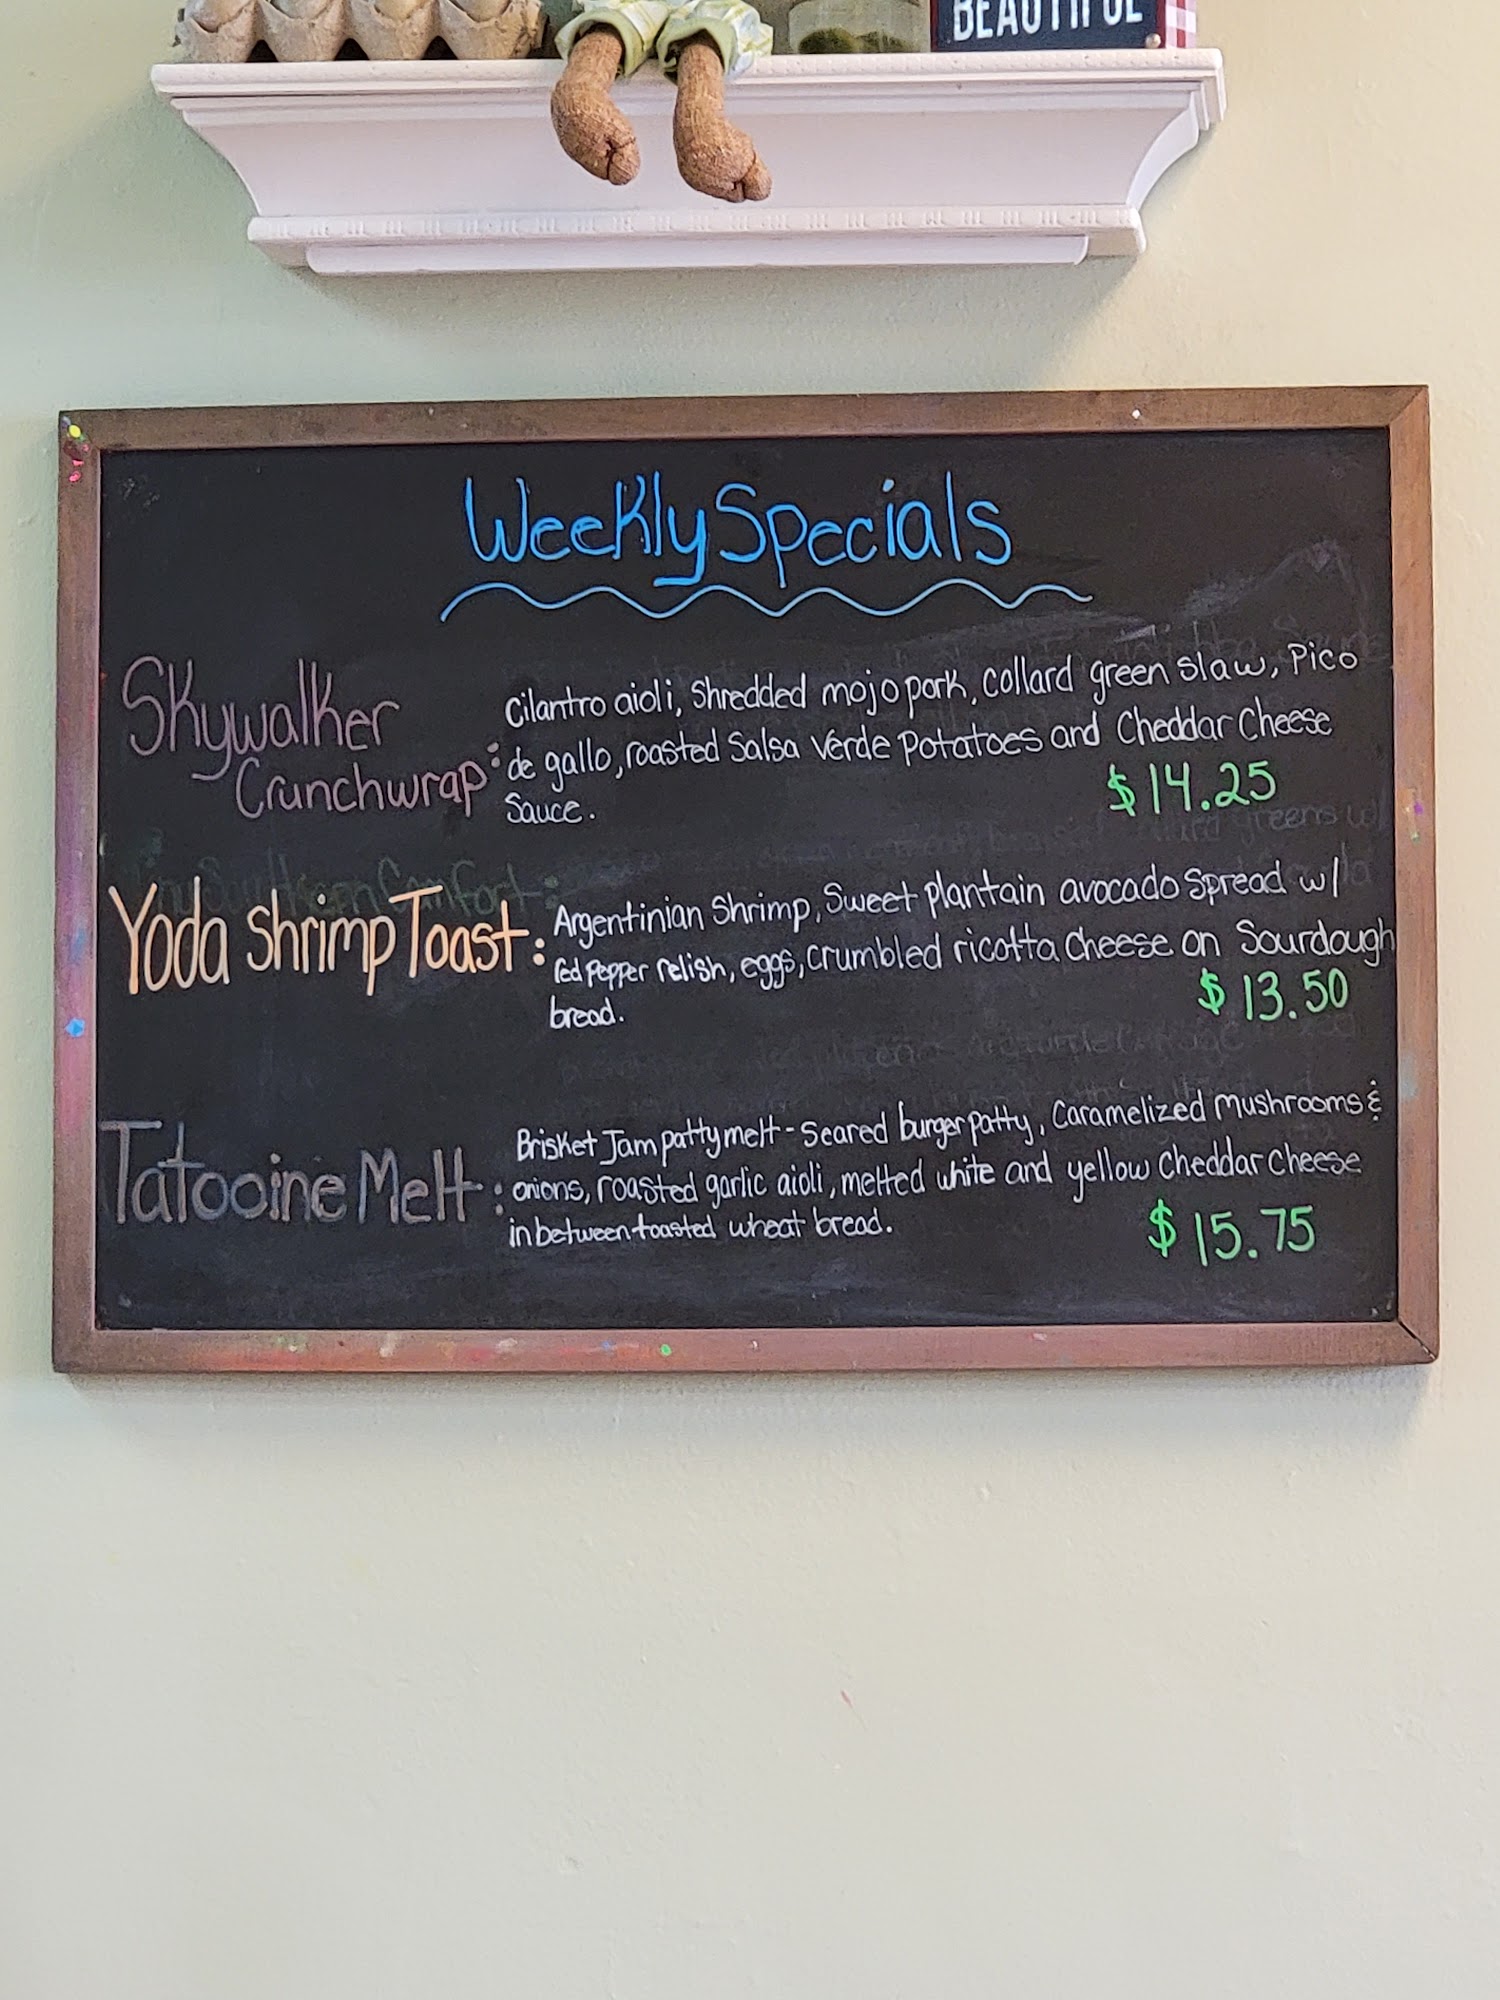 BEAUTIFUL
Weekly Specials
Skywalker
Crunchwrap:
Cilantro aioli, Shredded mojo pork, Collard green slaw, Pico
de gallo, roasted Salsa Verde Potatoes and Cheddar Cheese
Sauce.
$14.25
Yoda Shrimp Toast:
Argentinian Shrimp, Sweet plantain avocado Spread w/
red Pepper relish, eggs, crumbled ricotta Cheese on Sourdough
bread.
$13.50
Tatooine Melt:
Brisket Jam patty melt - Seared burger patty, Caramelized Mushrooms &
onions, roasted garlic aioli, melted white and yellow Cheddar Cheese
in between toasted wheat bread.
$15.75